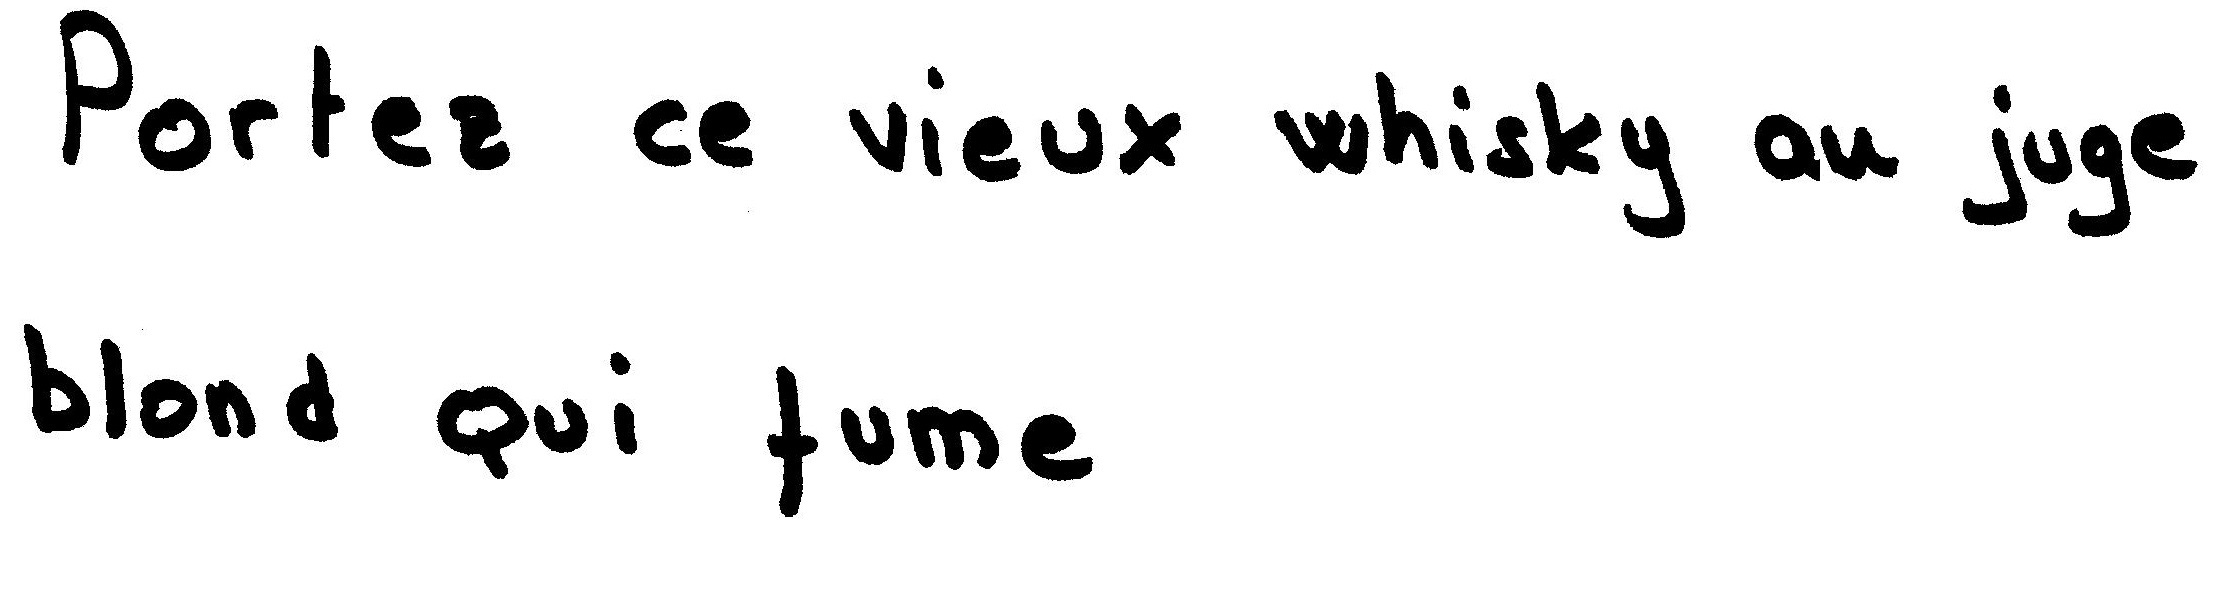 Portez ce vieux whisky au juge
blond qui fume